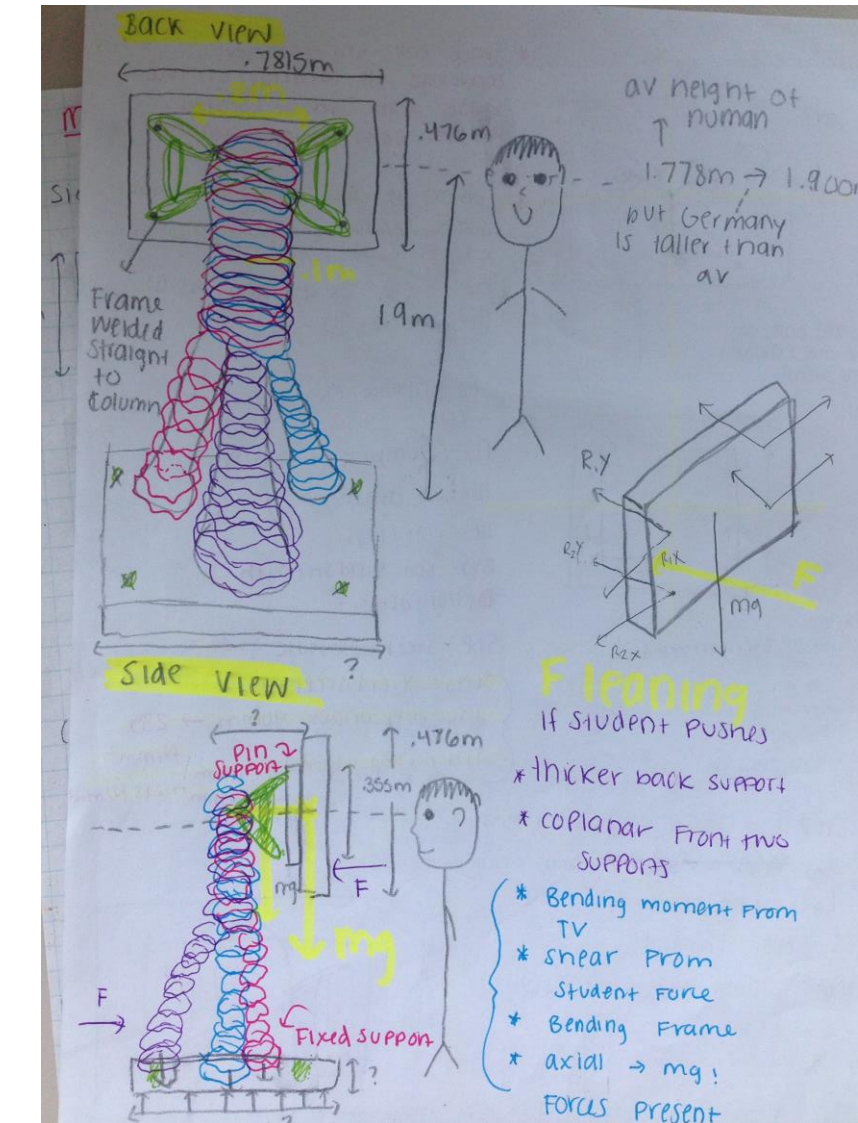 Back view
.7815m
.2m
.476m
.1m
1.9m
Frame
welded
straight
to
column
av height of
human
1.778m → 1.900m
but Germany
is taller than
av
R1Y
R2Y
R1X
R2X
F
mg
?
Side view
?
Pin
support
.476m
.355m
mg
F
mg
F
Fixed support
?
?
F leaning
If student pushes
* thicker back support
* coplanar front two
supports
* Bending moment from
TV
* shear from
student force
* Bending Frame
* axial → mg!
Forces present